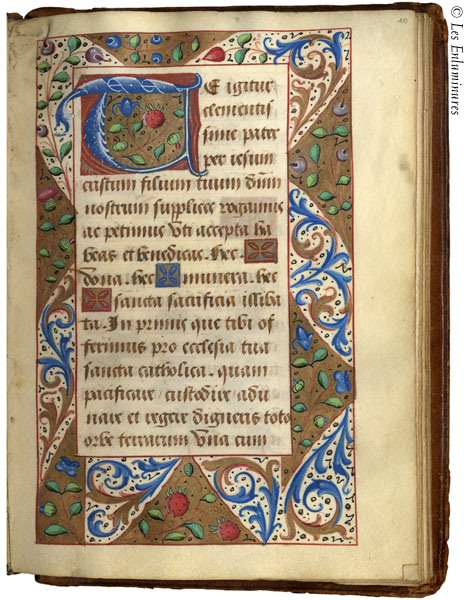 Te igitur
clementis
sime pater
per iesum
cristum filium tuum dnm
nostrum supplices rogamus
ac petimus Vti accepta ha
beas et benedicas. hec
dona. hec munera. hec
sancta sacrificia illiba
ta. In primis que tibi of
ferimus pro ecclesia tua
sancta catholica. quam
pacificare custodire adu
nare et regere digneris toto
orbe terrarum Vna cum
10
© Les Enluminures